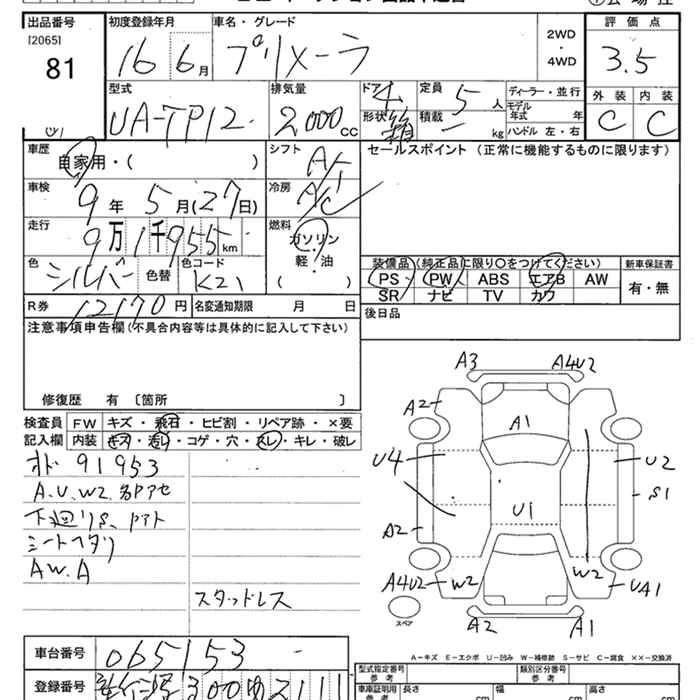 出品番号 初度登録年月 車名・グレード 2WD・4WD 評価点
[2065]
81 16 6月 プリメーラ 3.5
型式 排気量 ドア 定員 ディーラー・並行 外装 内装
UA-TP12 2000CC 4 5人 モデル年式 年 C C
形状 箱 積載 ー kg ハンドル 左・右
車歴 自家用・( ) シフト A/T セールスポイント (正常に機能するものに限ります)
車検 9年 5月(27日) 冷房 A/C
走行 9万1千955km 燃料 ガソリン
軽・油
( )
色 シルバー 色替 色コード K21
装備品 (純正品に限り○をつけてください) 新車保証書
PS PW ABS エアB AW 有・無
SR ナビ TV カワ
R券 12170円 名変通知期限 月 日
後日品
注意事項申告欄(不具合内容等は具体的に記入して下さい)
修復歴 有 〔箇所 〕
検査員記入欄 FW キズ・飛石・ヒビ割・リペア跡・×要
内装 キズ・汚レ・コゲ・穴・スレ・キレ・破レ
オド 91953
A.U.W2.各Pアセ
下廻りS、Pアト
シートヘタリ
A W.A
スタッドレス
A3 A4U2
A2 A1
U4 U2
S1
U1
A2
A4U2 W2 W2 UA1
スペア
A2 A1
A-キズ E-エクボ U-凹み W-補修跡 S-サビ C-腐食 ××-交換済
車台番号 065153
型式指定番号 参考 類別区分番号 参考
登録番号 300 2111
車庫証明用 参考 長さ cm 幅 cm 高さ cm